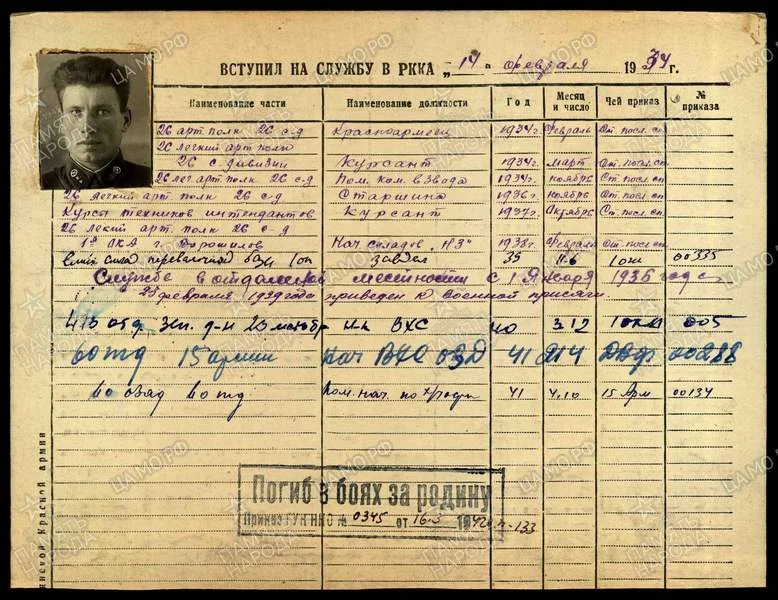 ВСТУПИЛ НА СЛУЖБУ В РККА „14" февраля 1934 г.
Наименование части Наименование должности Год Месяц и число Чей приказ № приказа
26 арт полк 26 с-д Красноармеец 1934г. Февраль От. посл. сп
26 легкий арт полк
26 с. дивизии Курсант 1934г. март От. посл. сп
26 лег. арт. полк 26 с-д Пом. ком. взвода 1934г. ноябрь От. посл. сп
26 легкий арт. полк 26 с-д Старшина 1936г. ноябрь От. посл. сп
Курсы техников интендантов Курсант 1937г. Октябрь От. посл. сп
26 легкий арт. полк 26 с-д
1я ОКА г. Ворошилов Нач складов "НЗ" 1938г. Февраль От. посл сп
перевалочной базы 1 оп завдел 39 11.6 00335
Служба в отдаленной местности с 1 Января 1936 года
23 февраля 1939 года приведен к военной присяге.
415 отд. зен. д-н н-к ВХС 40 3.12 1 ОКА 005
60 тд 15 армии Нач ВХС ОЗД 41 21.4 ДВФ 00288
60 озад 60 тд Пом. нач. по 41 4.10 15 Арм 00134
Погиб в боях за родину
Приказ ГУК НКО № 0345 от 16.3 1942г. п-133
нской Красной армии
ПАМЯТЬ НАРОДА
ЦАМО.РФ